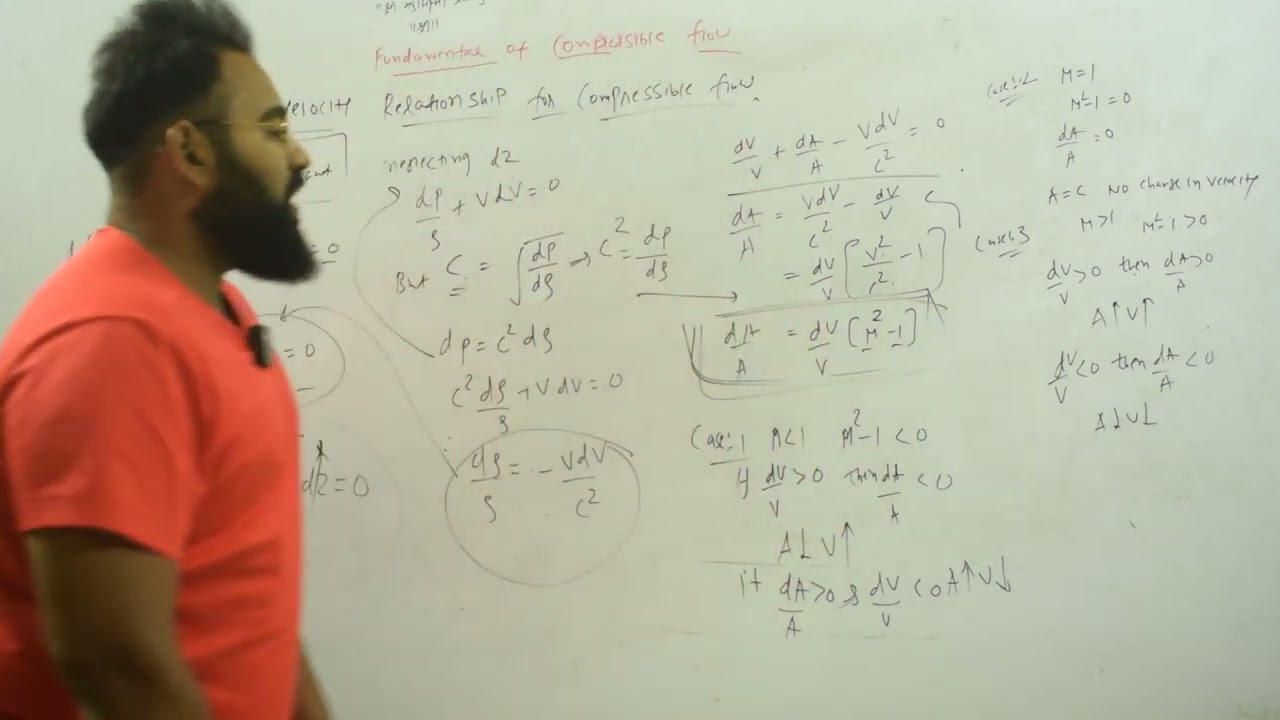 Fundamental of Compressible flow
velocity Relationship for Compressible flow
neglecting dz
dp/ρ + VdV = 0
But C = √(dp/dρ) → C² = dp/dρ
dp = C² dρ
C² dρ/ρ + VdV = 0
dρ/ρ = - VdV/C²
= 0
= 0
dz = 0
dV/V + dA/A - VdV/C² = 0
dA/A = VdV/C² - dV/V
= dV/V [V²/C² - 1]
dA/A = dV/V [M² - 1]
Case:1 M<1 M²-1 < 0
If dV/V > 0 then dA/A < 0
A↓ V↑
if dA/A > 0 & dV/V < 0 A↑ V↓
Case:2 M=1
M²-1 = 0
dA/A = 0
A=C No change in velocity
Case:3 M>1 M²-1 > 0
dV/V > 0 then dA/A > 0
A↑ V↑
dV/V < 0 then dA/A < 0
A↓ V↓